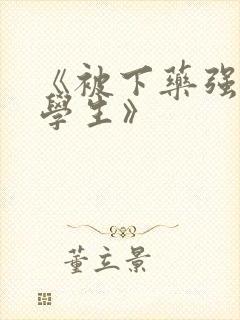 《被下藥強
學生》
董立景